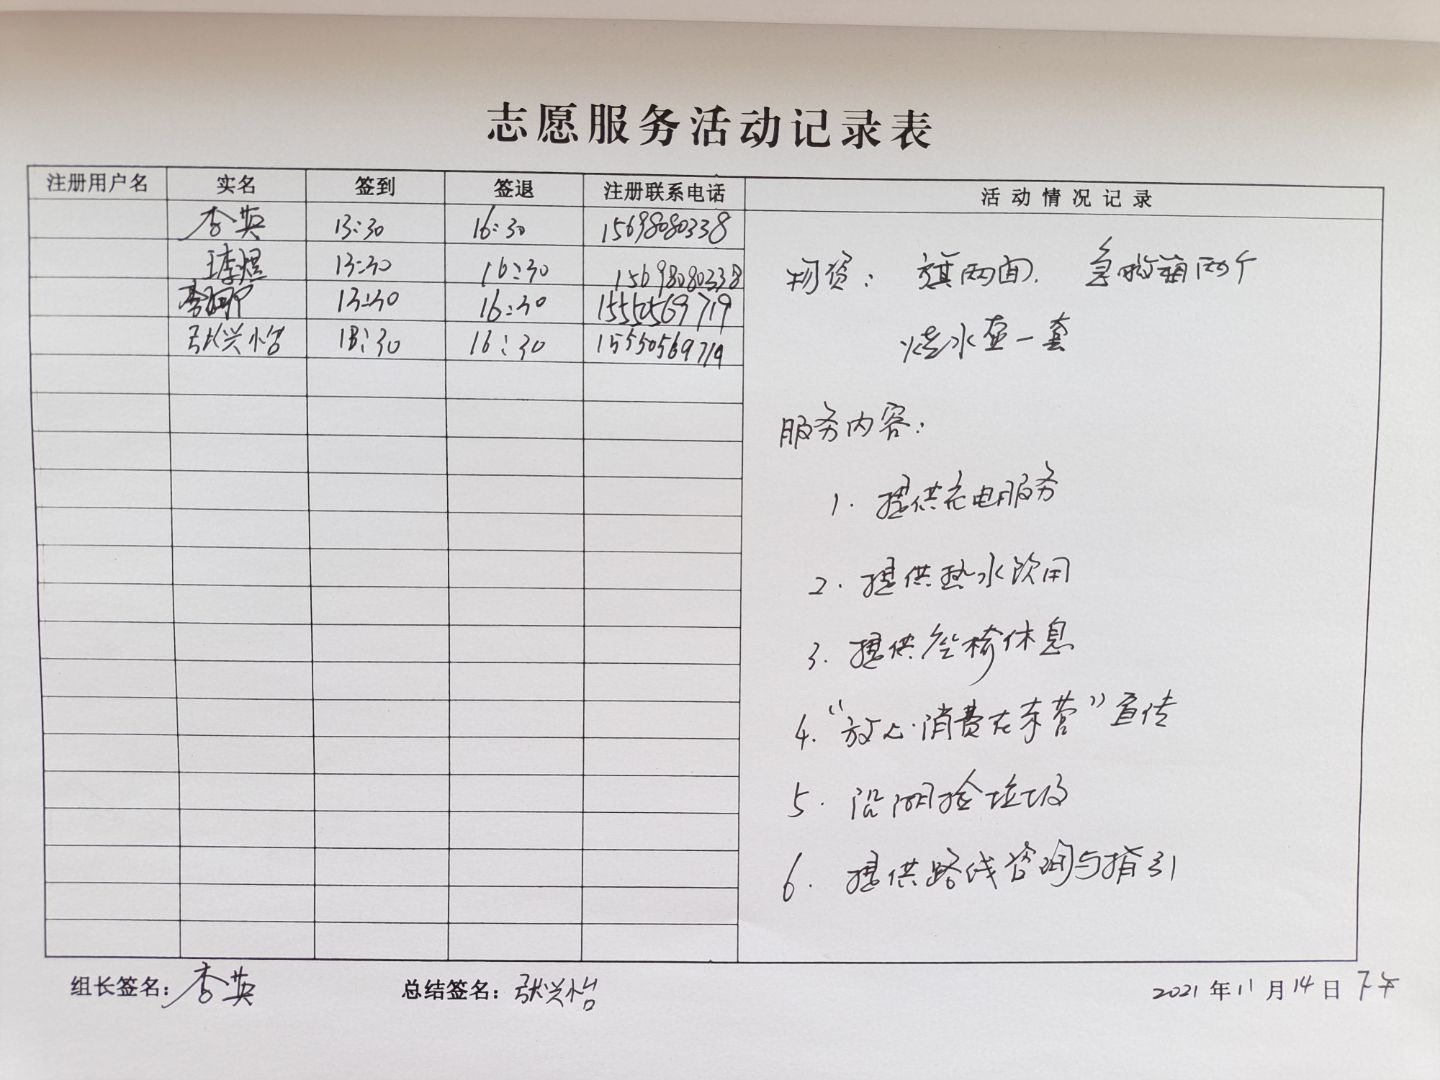 志愿服务活动记录表
注册用户名 实名 签到 签退 注册联系电话 活动情况记录
李英 13:30 16:30 15698080338
王李煜 13:30 16:30 15698080338
13:30 16:30 15550569719
张兴怡 13:30 16:30 15550569719
物资： 旗两面. 急救箱两个
烧水壶一套
服务内容：
1. 提供充电服务
2. 提供热水饮用
3. 提供座椅休息
4. “放心消费在东营”宣传
5. 沿湖捡垃圾
6. 提供路线咨询与指引
组长签名：李英 总结签名：张兴怡 2021年11月14日 下午